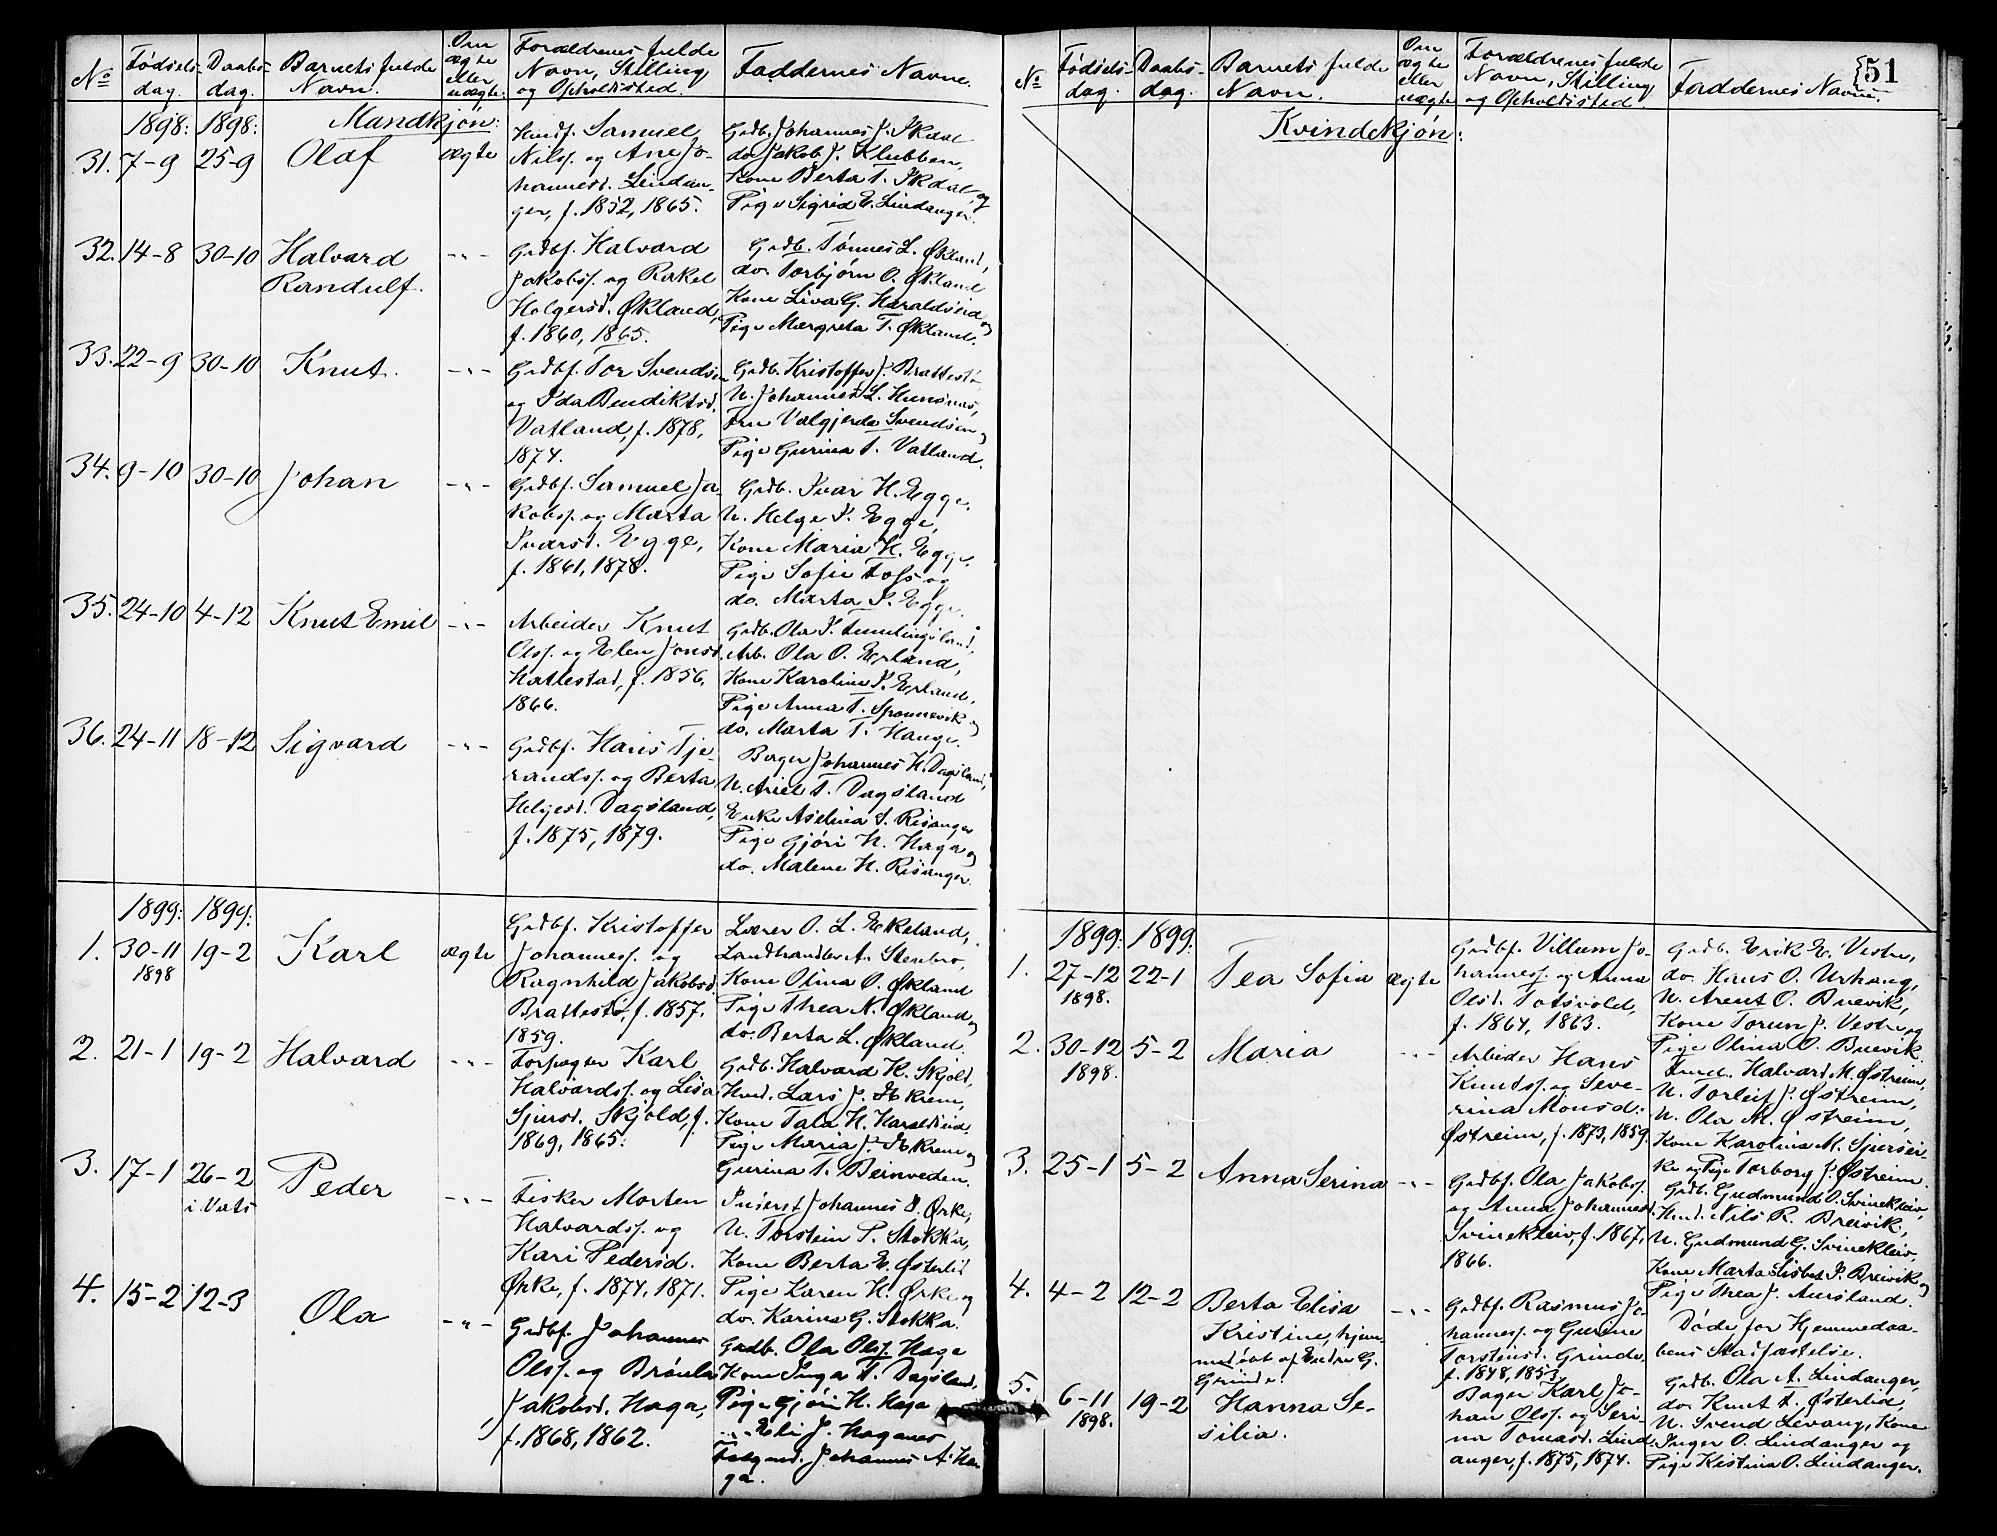 No
Fødsels-
dag.
Daabs-
dag.
Barnets fulde
Navn.
Om
ægte
eller
uægte:
Forældrenes fulde
Navn, Stilling,
og Opholdssted.
Faddernes Navne.
1898: 1898:
Mandkjøn:
31. 7-9 25-9 Olaf ægte
Husdf. Samuel
Nilss. og Ane Jo-
hannesd. Lindan-
ger, f. 1852, 1865.
Grdb. Johannes J. Skdal
do. Jakob J. Klubben,
Kone Berta T. Skdal, og
Pige Sigrid E. Lindanger.
32. 14-8 30-10 Halvard
Randulf.
-"-
Grdbf. Halvard
Jakobss. og Rakel
Holgersd. Økland,
f. 1860, 1865.
Grdb. Tønnes L. Økland,
do. Torbjørn O. Økland
Kone Liva G. Haraldseid og
Pige Margreta T. Økland.
33. 22-9 30-10 Knut.
-"-
Grdbf. Tor Svendsen
og Ida Bendiktsd.
Vatland, f. 1878,
1874.
Grdb. Kristoffer J. Brattestø
U. Johannes L. Hunsnes,
Fru Valgjerda Svendsen og
Pige Gurina T. Vatland.
34. 9-10 30-10 Johan
-"-
Grdbf. Samuel Ja-
kobss. og Marta
Ivarsd. Egge,
f. 1861, 1878.
Grdb. Ivar H. Egge,
U. Helge I. Egge,
Kone Maria H. Egge,
Pige Sofie Foss og
do. Marta I. Egge.
35. 24-10 4-12 Knut Emil
-"-
Arbeider Knut
Olss. og Elen Jonsd.
Hattestad, f. 1856,
1866.
Grdb. Ola
Arb. Ola O. Erland,
Kone Karoline I. Erland,
Pige Anna T. Sponnevik og
do. Marta T. Hauge.
36. 24-11 18-12 Sigvard
-"-
Grdbf. Hans Tje-
randss. og Berta
Helgesd. Dagsland,
f. 1875, 1879.
Bager Johannes H. Dagsland,
U. Ariel T. Dagsland
Enke Aselina S. Risanger
Pige Gjøri H. Haga og
do. Malene H. Risanger.
1899: 1899:
1. 30-11
1898
19-2 Karl ægte
Grdbf. Kristoffer
Johanness. og
Ragnhild Jakobsd.
Brattestø, f. 1857,
1859.
Lærer O. L. Ekeland,
Landhandler A. Stenbro,
Kone Olina O. Økland
Pige Thea N. Økland og
do. Berta L. Økland
2. 21-1 19-2 Halvard
-"-
Forpagter Karl
Halvardss. og Lisa
Sjursd. Skjold, f.
1869, 1865.
Grdb. Halvard H. Skjold,
Husd. Lars J.
Kone Tala H. Haraldseid.
Pige Maria J.
Gurina T. Beinveden.
3. 17-1 26-2
i Vats
Peder
-"-
Fisker Morten
Halvardss. og
Kari Pedersd.
Ørke, f. 1874, 1871.
Inderst Johannes O. Ørke,
U. Torstein P. Stokka,
Kone Berta E. Østerlid
Pige Karen H. Ørke og
do. Karina G. Stokka.
4. 15-2 12-3 Ola
-"-
Grdbf. Johannes
Olss. og Brønla
Jakobsd. Haga,
f. 1868, 1862.
Grdb. Ola Olss. Haga
Kone Inga T. Dagsland,
Pige Gjøri H. Haga
-"- Eli J. Haganes
Johannes A. Ha-
ga.
No
Fødsels-
dag.
Daabs-
dag.
Barnets fulde
Navn.
Om
ægte
eller
uægte
Forældrenes fulde
Navn, Stilling
og Opholdssted
Faddernes Navne.
51
Kvindekjøn:
1899: 1899.
1. 27-12
1898.
22-1 Tea Sofia ægte
Grdbf. Villum Jo-
hanness. og Anna
Olsd. Totsvold,
f. 1864, 1863.
Grdb. Erik E. Vestre,
do. Hans O. Urhaug,
U. Arent O. Buevik,
Kone Torun J. Vestre, og
Pige Olina O. Buevik.
2. 30-12
1898.
5-2 Maria
-"-
Arbeider Hans
Knudss. og Seve-
rina Monsd.
Østreim, f. 1873, 1859.
Halvard M. Østreim,
U. Torleif J. Østreim,
U. Ola M. Østreim,
Kone Karolina M. Sjursei-
ke og Pige Torborg J. Østreim.
3. 25-1 5-2 Anna Serina
-"-
Grdbf. Ola Jakobss.
og Anna Johannesd.
Svinekleiv, f. 1867,
1866.
Grdb. Gudmund O. Svinekleiv,
Husd. Nils R. Breivik,
U. Gudmund G. Svinekleiv
Kone Marta Lisbet P. Breivik og
Pige Thea J. Aursland.
4. 4-2 12-2 Berta Elisa
Kristine, hjem-
medøbt af Endre G.
Grinde.
-"-
Grdbf. Rasmus Jo-
hanness. og Gurine
Torsteinsd. Grinde,
f. 1848, 1853.
Døde før Hjemmedaa-
bens Stadfæstelse.
5. 6-11
1898.
19-2 Hanna Se-
silia.
Bager Karl Jo-
han Olss. og Seri-
na Tomasd. Lind-
anger, f. 1875, 1874.
Grdb. Ola A. Lindanger,
do. Knut A. Østerlid,
U. Svend Levang, Kone
Inger O. Lindanger og
Pige Kistina O. Lindanger.